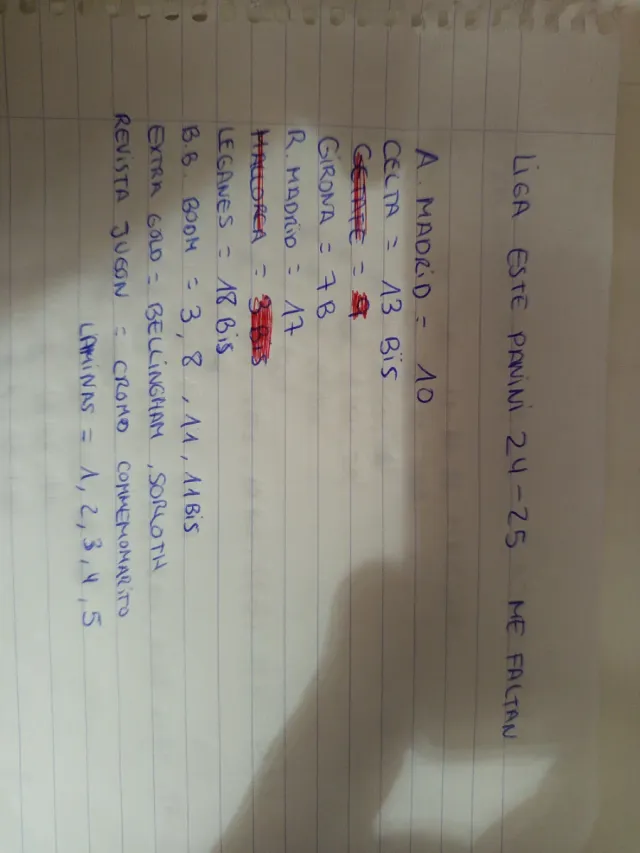 LIGA ESTE PANINI 24-25 ME FALTAN
A. MADRID = 10
CELTA = 13 BIS
GETAFE = 9
GIRONA = 7B
R. MADRID = 17
MALLORCA = 9 BIS
LEGANES = 18 BIS
B.B. BOOM = 3, 8, 11, 11BIS
EXTRA GOLD = BELLINGHAM, SORLOTH
REVISTA JUGON = CROMO COMMEMOMARITO
LAMINAS = 1, 2, 3, 4, 5